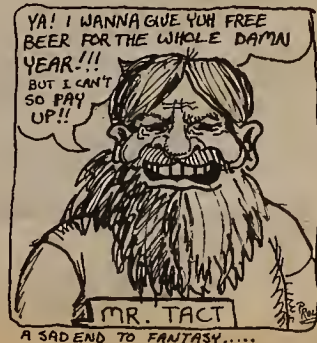 YA! I WANNA GIVE YUH FREE
BEER FOR THE WHOLE DAMN
YEAR!!!
BUT I CAN'T
SO PAY
UP!!
MR. TACT
A SAD END TO FANTASY.....